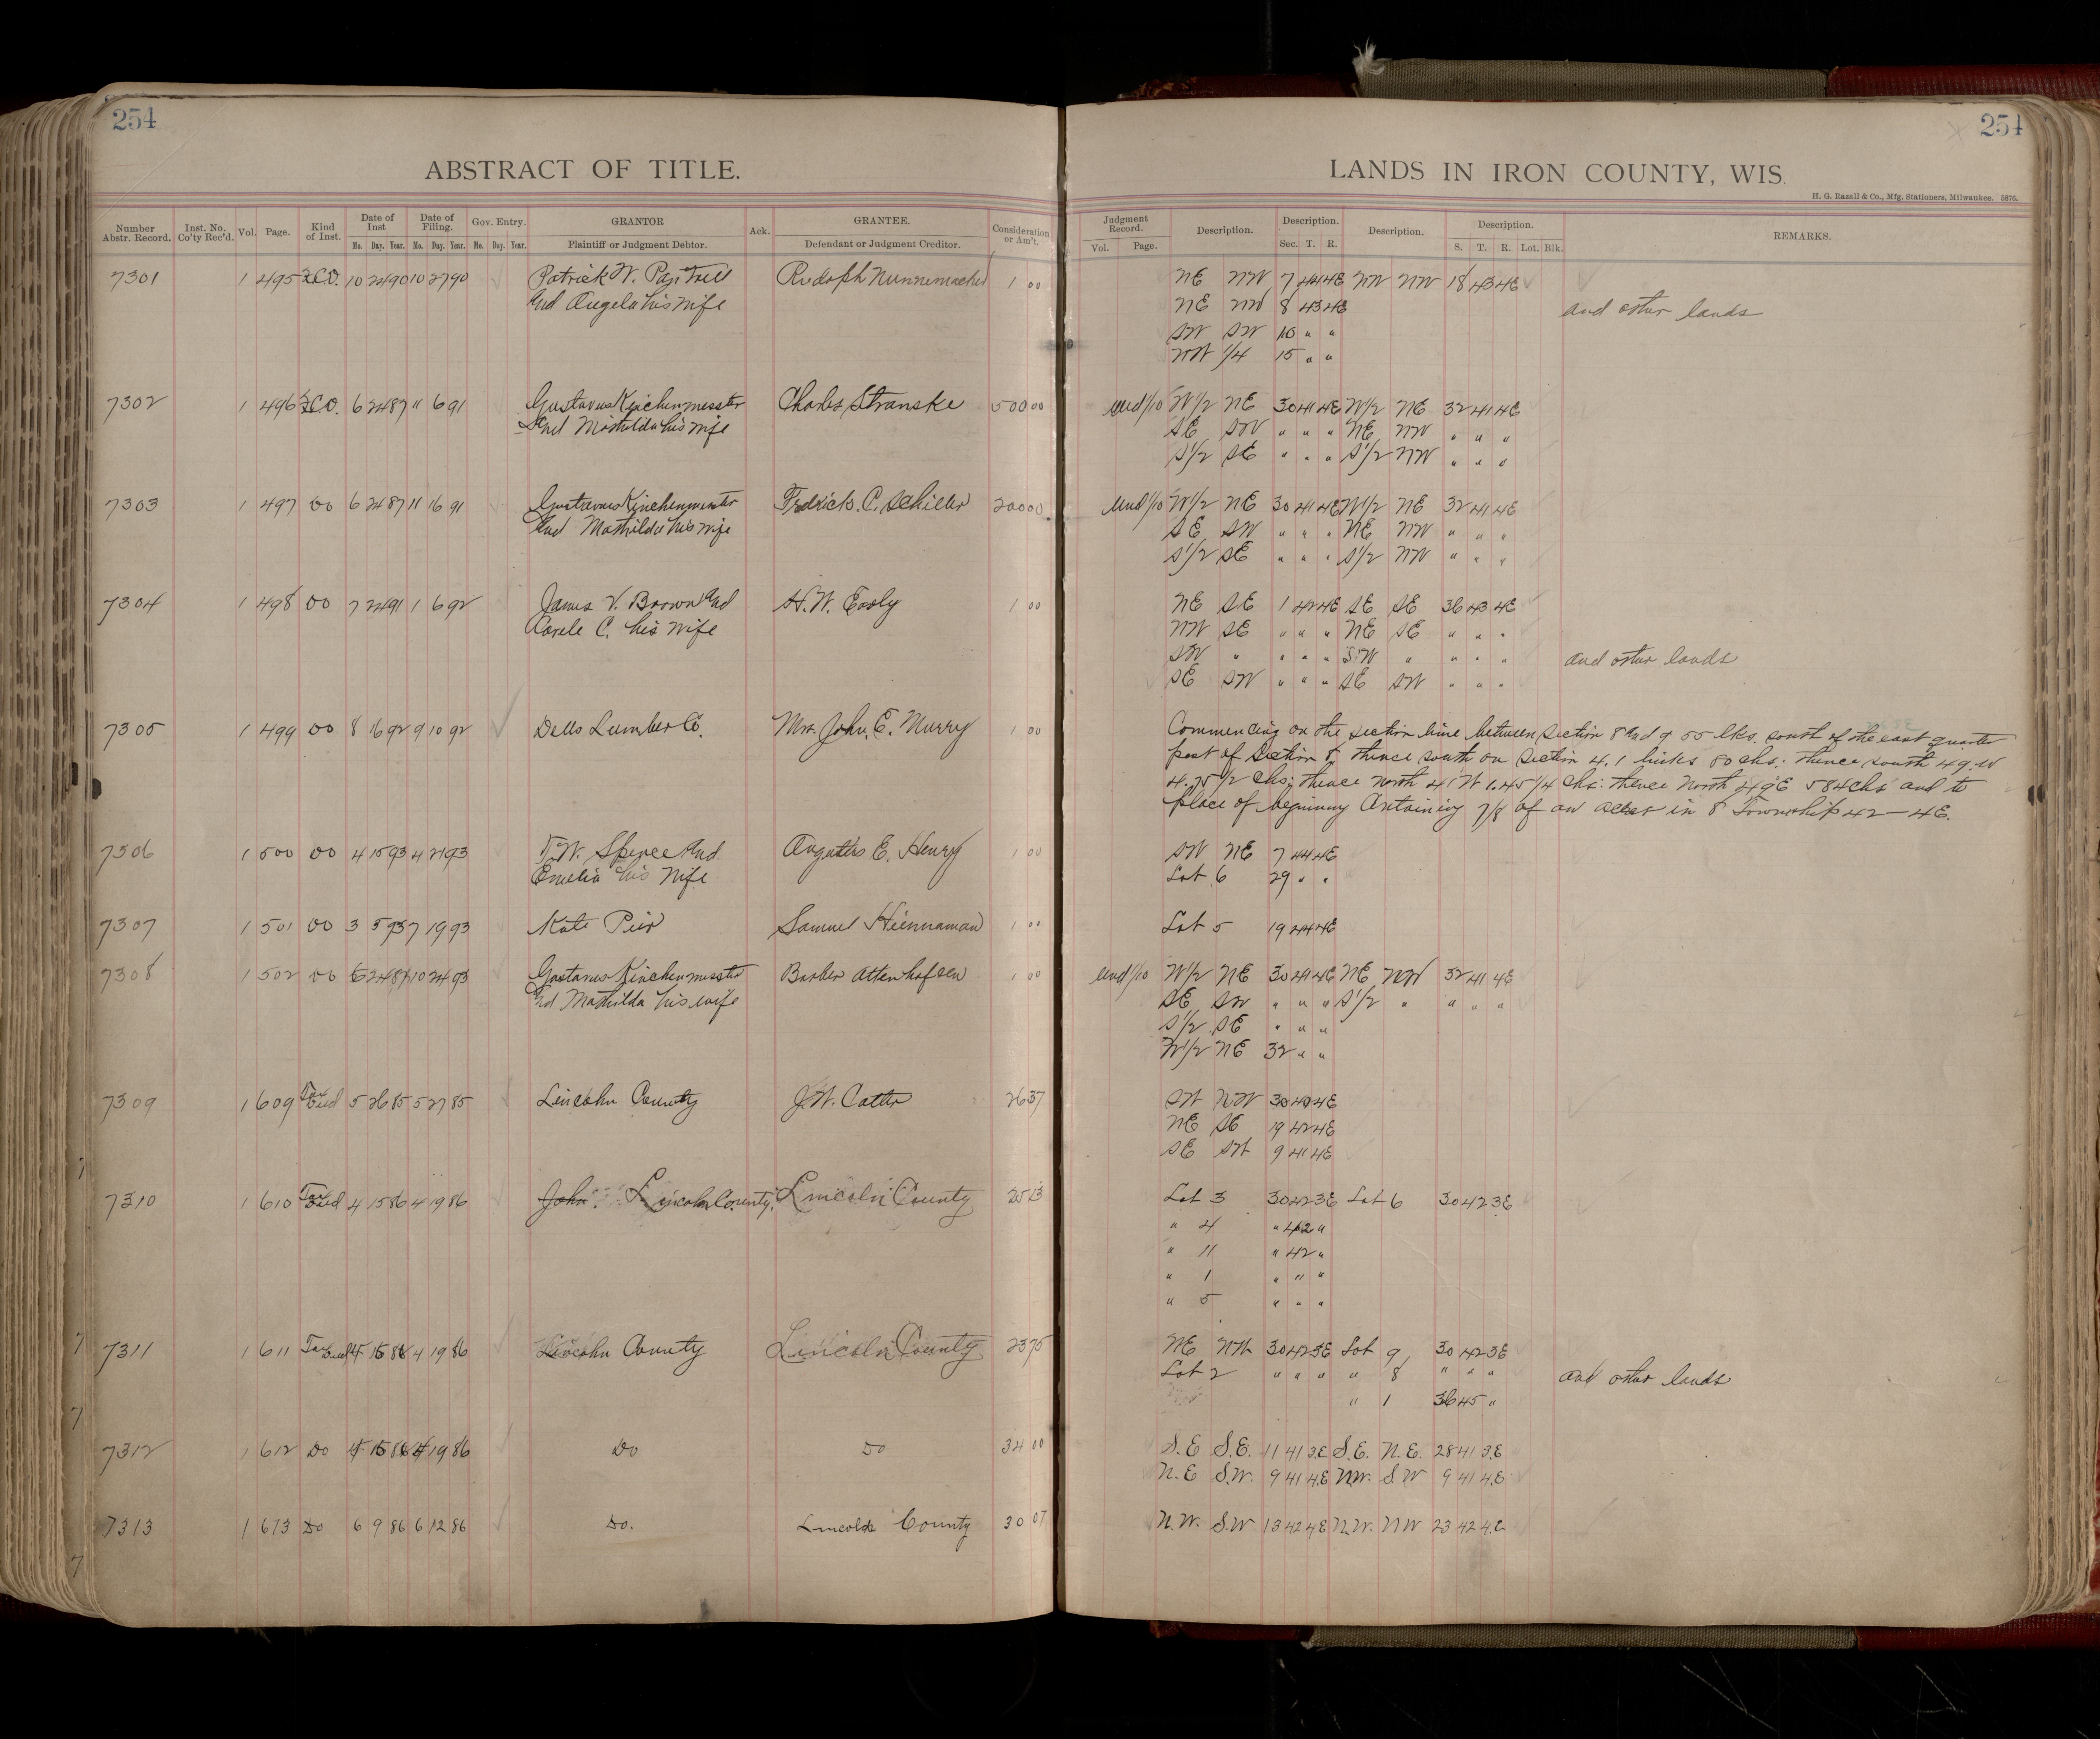 254
254
ABSTRACT OF TITLE.
LANDS IN IRON COUNTY, WIS.
H. G. Razall & Co., Mfg. Stationers, Milwaukee. 5876.
Number Abstr. Record. Inst. No. Co'ty Rec'd. Vol. Page. Kind of Inst. Date of Inst Mo. Day. Year. Date of Filing. Mo. Day. Year. Gov. Entry. Mo. Day. Year. GRANTOR Plaintiff or Judgment Debtor. Ack. GRANTEE. Defendant or Judgment Creditor. Consideration or Am't.
Judgment Record. Vol. Page. Description. Description. Sec. T. R. Description. Description. S. T. R. Lot. Blk. REMARKS.
7301 1 495 Q.C.D. 10 24 90 10 27 90 Patrick W. Rudolph Nunnemacher 1 00 NE NW 7 44 4E NW NW 18 43 4E
And Angela his wife NE NW 8 43 4E and other lands
SW SW 10 " "
NW 1/4 15 " "
7302 1 496 Q.C.D. 6 24 87 11 6 91 Gustavus Kirchenmesster Charles Stranske 500 00 und 1/10 W1/2 NE 30 41 4E W1/2 NE 32 41 4E
And Mathilda his wife SE SW " " " NE NW " " "
S1/2 SE " " " S1/2 NW " " "
7303 1 497 DO 6 24 87 11 16 91 Gustavus Kirchenmesster Fredrick C. Schiller 200 00 und 1/10 W1/2 NE 30 41 4E W1/2 NE 32 41 4E
And Mathilda his wife SE SW " " " NE NW " " "
S1/2 SE " " " S1/2 NW " " "
7304 1 498 DO 7 24 91 1 6 92 James V. Brown And H. W. Early 1 00 NE SE 1 42 4E SE SE 36 43 4E
C. his wife NW SE " " " NE SE " " "
SW " " " " SW " " " " and other lands
SE SW " " " SE SW " " "
7305 1 499 DO 8 16 92 9 10 92 Dells Lumber Co. Mrs. John. E. Murry 1 00 Commencing on the section line between section 8 And 9 55 lks. south of the east quarter
post of Section 8, thence south on Section 4.1 links 80 chs.: thence south 49.W
4.75 1/2 chs; thence north 41 W 1.45 1/4 chs: thence North 49E 584chs and to
place of beginning Containing 7/8 of an acres in 8 Township 42 — 4E.
7306 1 500 DO 4 15 93 4 21 93 T. W. Spence And Augustis E. Henry 1 00 SW NE 7 44 4E
Emelia his wife Lot 6 29 " "
7307 1 501 DO 3 5 93 7 19 93 Kate Pier Samuel Hiennaman 1 00 Lot 5 19 44 4E
7308 1 502 DO 6 24 87 10 24 93 Gustavus Kirchenmesster Barber Attenhofsen 1 00 und 1/10 W1/2 NE 30 41 4E NE NW 32 41 4E
And Mathilda his wife SE SW " " " S1/2 " " " "
S1/2 SE " " "
W1/2 NE 32 " "
7309 1 609 Tax Deed 5 26 85 5 27 85 Lincoln County J. W. Catter 26 37 SW NW 30 40 4E
NE SE 19 42 4E
SE SW 9 41 4E
7310 1 610 Tax Deed 4 15 86 4 19 86 John Lincoln County Lincoln County 25 13 Lot 3 30 42 3E Lot 6 30 42 3E
" 4 " 42 "
" 11 " 42 "
" 1 " " "
" 5 " " "
7311 1 611 Tax Deed 4 15 86 4 19 86 Lincoln County Lincoln County 23 75 NE NW 30 42 3E Lot 9 30 42 3E
Lot 2 " " " " 8 " " " and other lands
" 1 36 45 "
7312 1 612 DO 4 15 86 4 19 86 DO DO 34 00 S.E S.E. 11 41 3.E S.E. N.E. 28 41 3.E
N.E S.W. 9 41 4.E NW. S.W 9 41 4.E
7313 1 673 DO 6 9 86 6 12 86 Do. Lincoln County 30 07 N.W. S.W 13 42 4.E N.W. NW 23 42 4.E